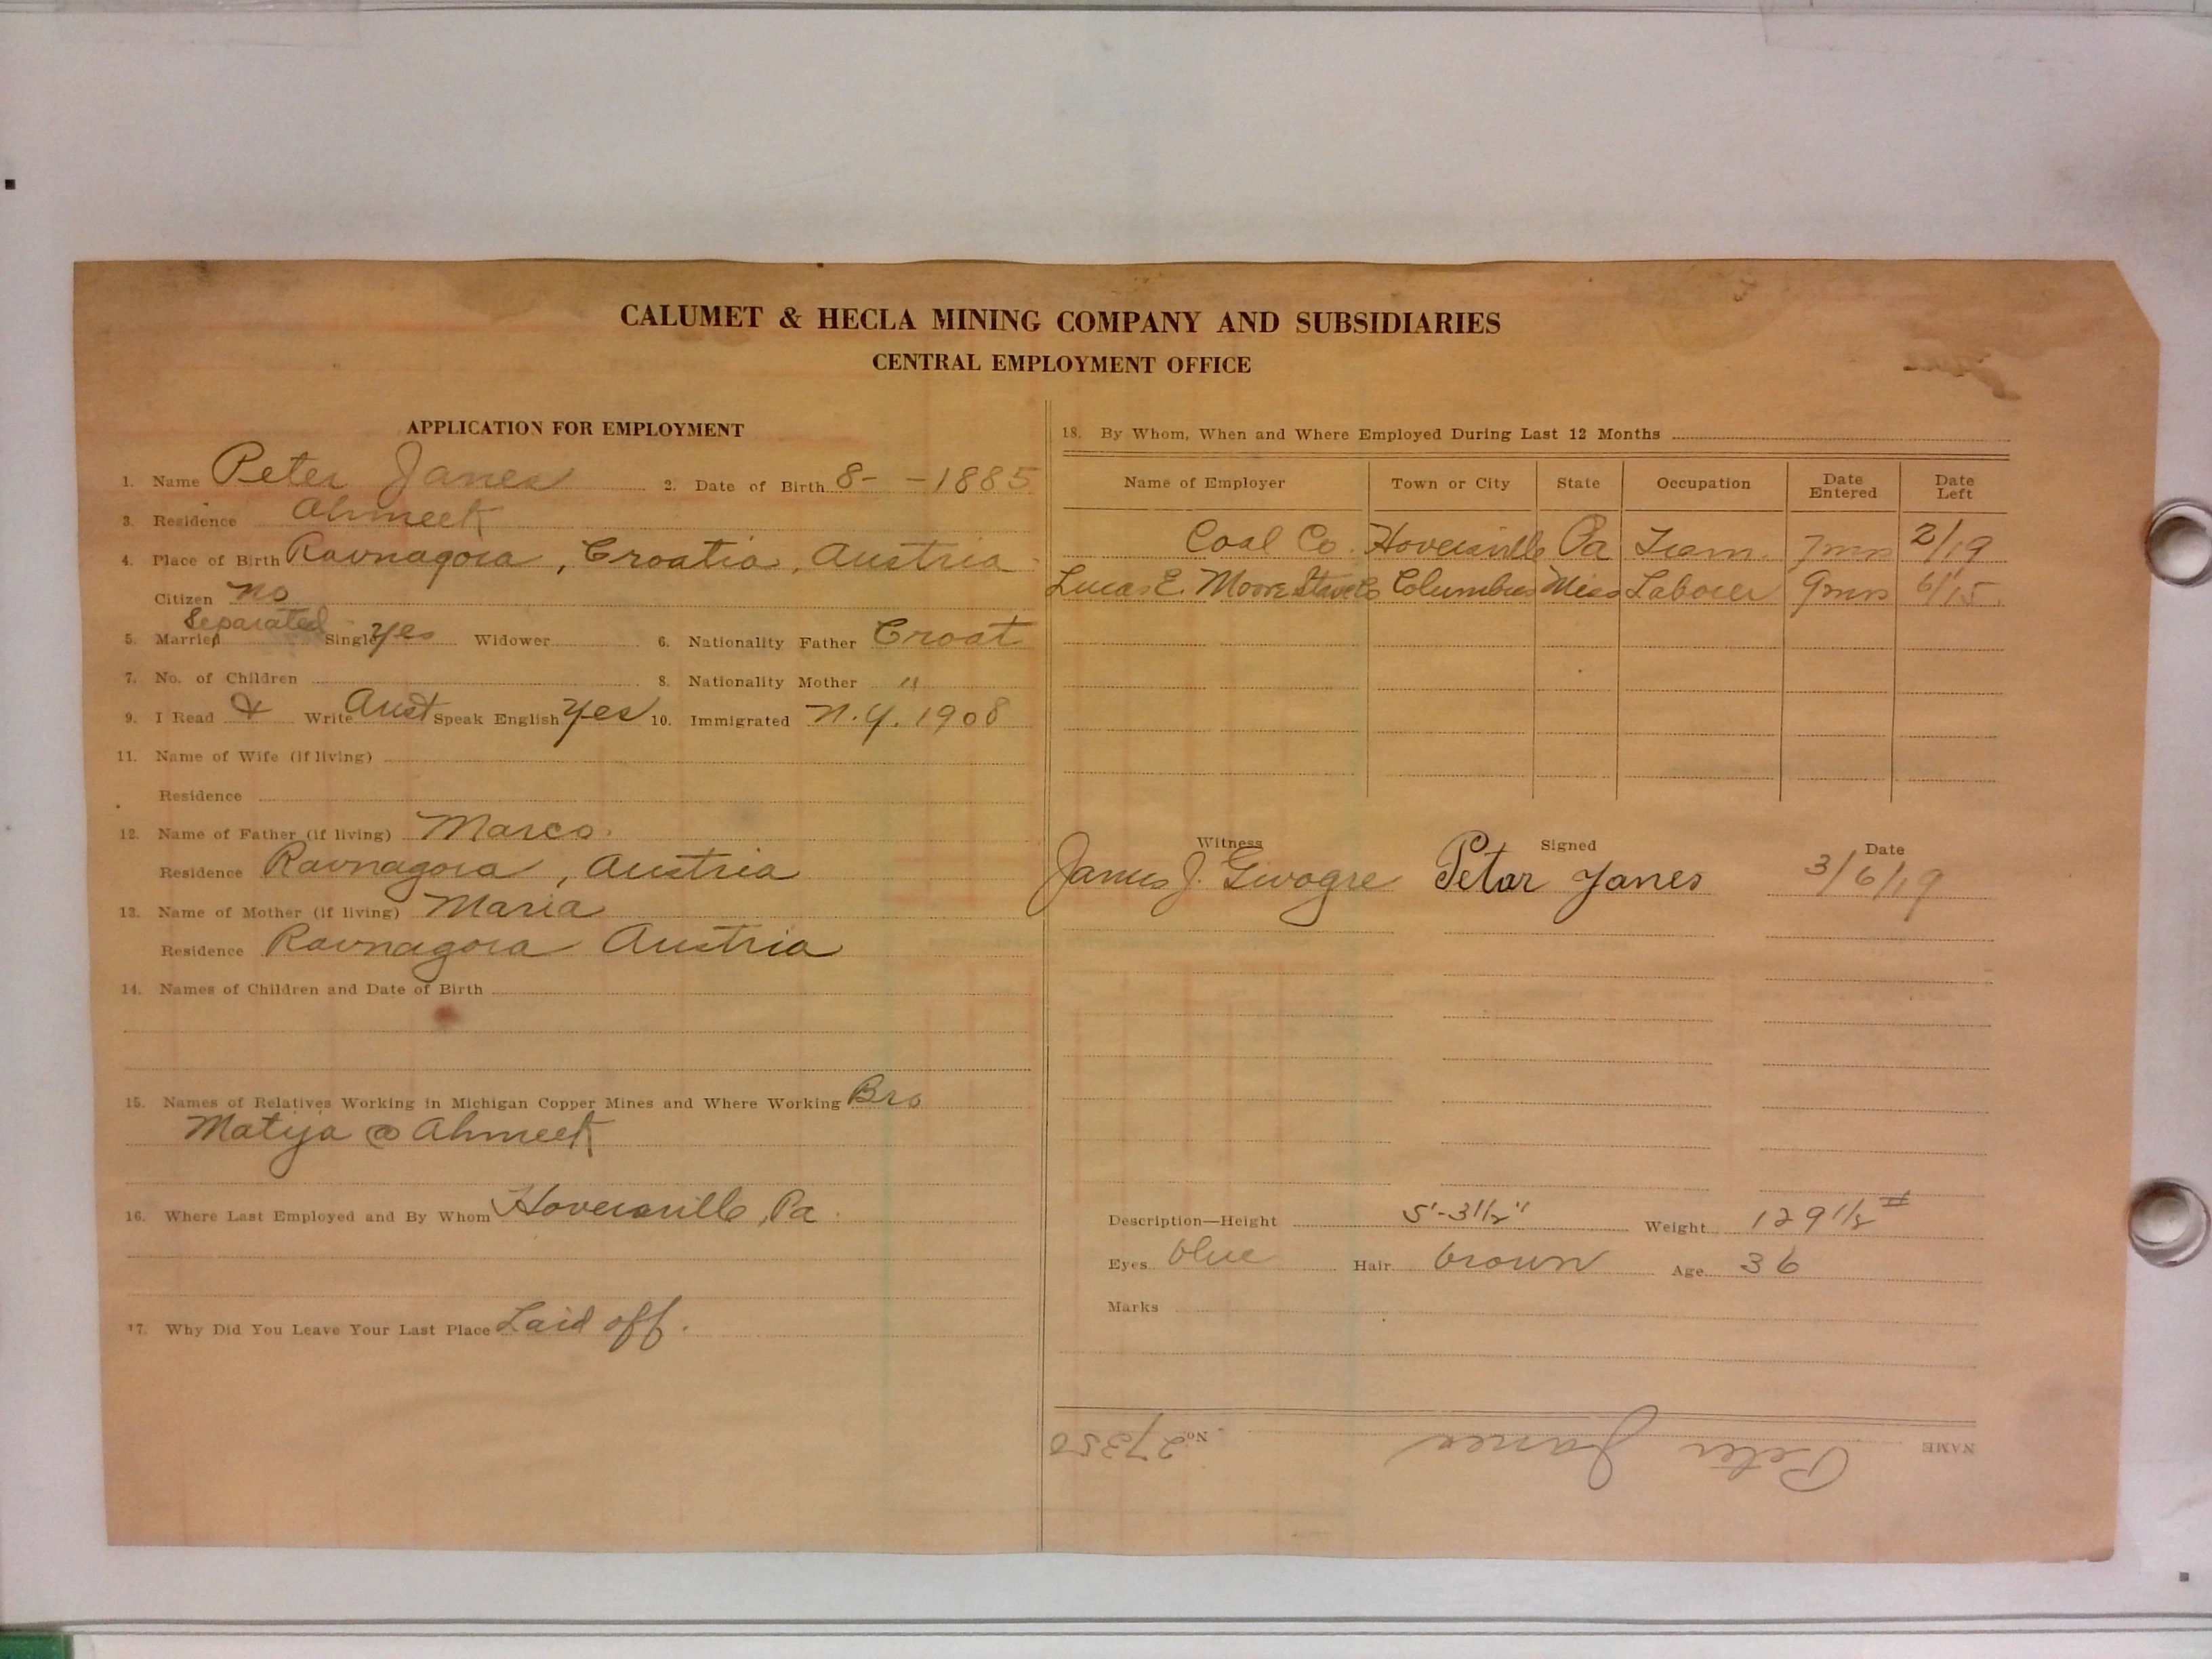 CALUMET & HECLA MINING COMPANY AND SUBSIDIARIES
CENTRAL EMPLOYMENT OFFICE
APPLICATION FOR EMPLOYMENT
1. Name Peter Janes 2. Date of Birth 8- -1885
3. Residence Ahmeek
4. Place of Birth Ravnagora, Croatia, Austria
Citizen no
Separated
5. Married Single yes Widower 6. Nationality Father Croat
7. No. of Children 8. Nationality Mother "
9. I Read & Write Aust Speak English Yes 10. Immigrated N.Y. 1908
11. Name of Wife (if living)
Residence
12. Name of Father (if living) Marco.
Residence Ravnagora, Austria
13. Name of Mother (if living) Maria
Residence Ravnagora Austria
14. Names of Children and Date of Birth
15. Names of Relatives Working in Michigan Copper Mines and Where Working Bro
Matija @ Ahmeek
16. Where Last Employed and By Whom Hoversville, Pa.
17. Why Did You Leave Your Last Place Laid off.
18. By Whom, When and Where Employed During Last 12 Months
Name of Employer Town or City State Occupation Date Entered Date Left
Coal Co. Hoversville Pa Tram. 7mns 2/19
Lucas E. Moore Stave Co Columbus Miss Laborer 9mns 6/15.
Witness Signed Date
James J. Petar Janes 3/6/19
Description—Height 5'-3 1/2" Weight 129 1/2 #
Eyes blue Hair brown Age 36
Marks
NAME Peter Janes No. 27350